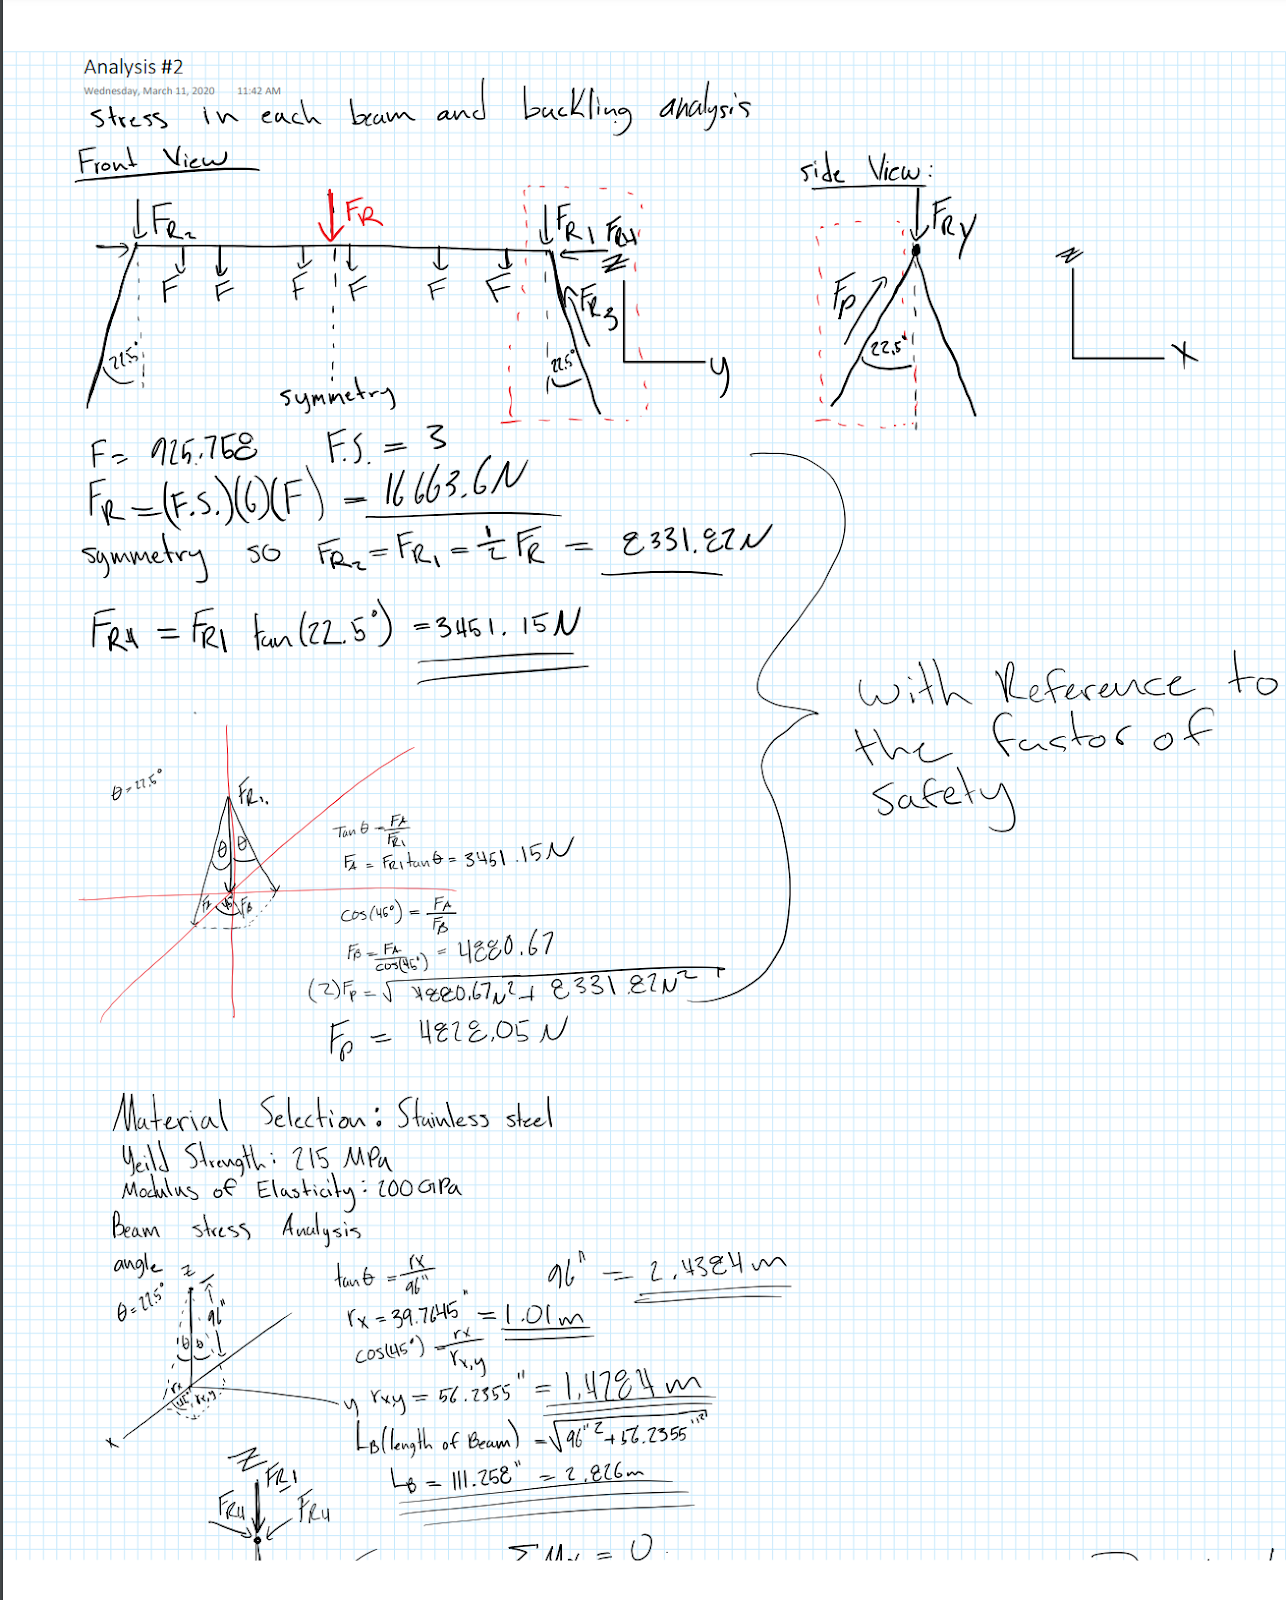 Analysis #2
Wednesday, March 11, 2020 11:42 AM
stress in each beam and buckling analysis
Front View
side View:
FR2 FR FR1 FR4 FRy
F F F F F F
FR3
Z
Z
Fp
22.5° 22.5° 22.5°
y
x
symmetry
F = 925.758 F.S. = 3
FR = (F.S.)(6)(F) = 16663.6N
symmetry so FR2 = FR1 = 1/2 FR = 8331.82N
FR4 = FR1 tan(22.5°) = 3451.15N
with Reference to
the factor of
safety
θ = 22.5°
FR1
θ θ
FA 45° FB
Tan θ = FA/FR1
FA = FR1 tanθ = 3451.15N
cos(45°) = FA/FB
FB = FA/cos(45°) = 4880.67
(2)Fp = √4880.67N² + 8331.82N²
Fp = 4828.05N
Material Selection: Stainless steel
Yeild Strength: 215 MPa
Modulus of Elasticity: 200GPa
Beam stress Analysis
angle
θ = 22.5°
z
96"
θ θ
rx 45° rx,y
y
x
tanθ = rx/96"
96" = 2.4384m
rx = 39.7645" = 1.01m
cos(45°) = rx/rx,y
rxy = 56.2355" = 1.4284m
LB(length of Beam) = √96"² + 56.2355"²
LB = 111.258" = 2.826m
Z
FR1
FR4 FR4